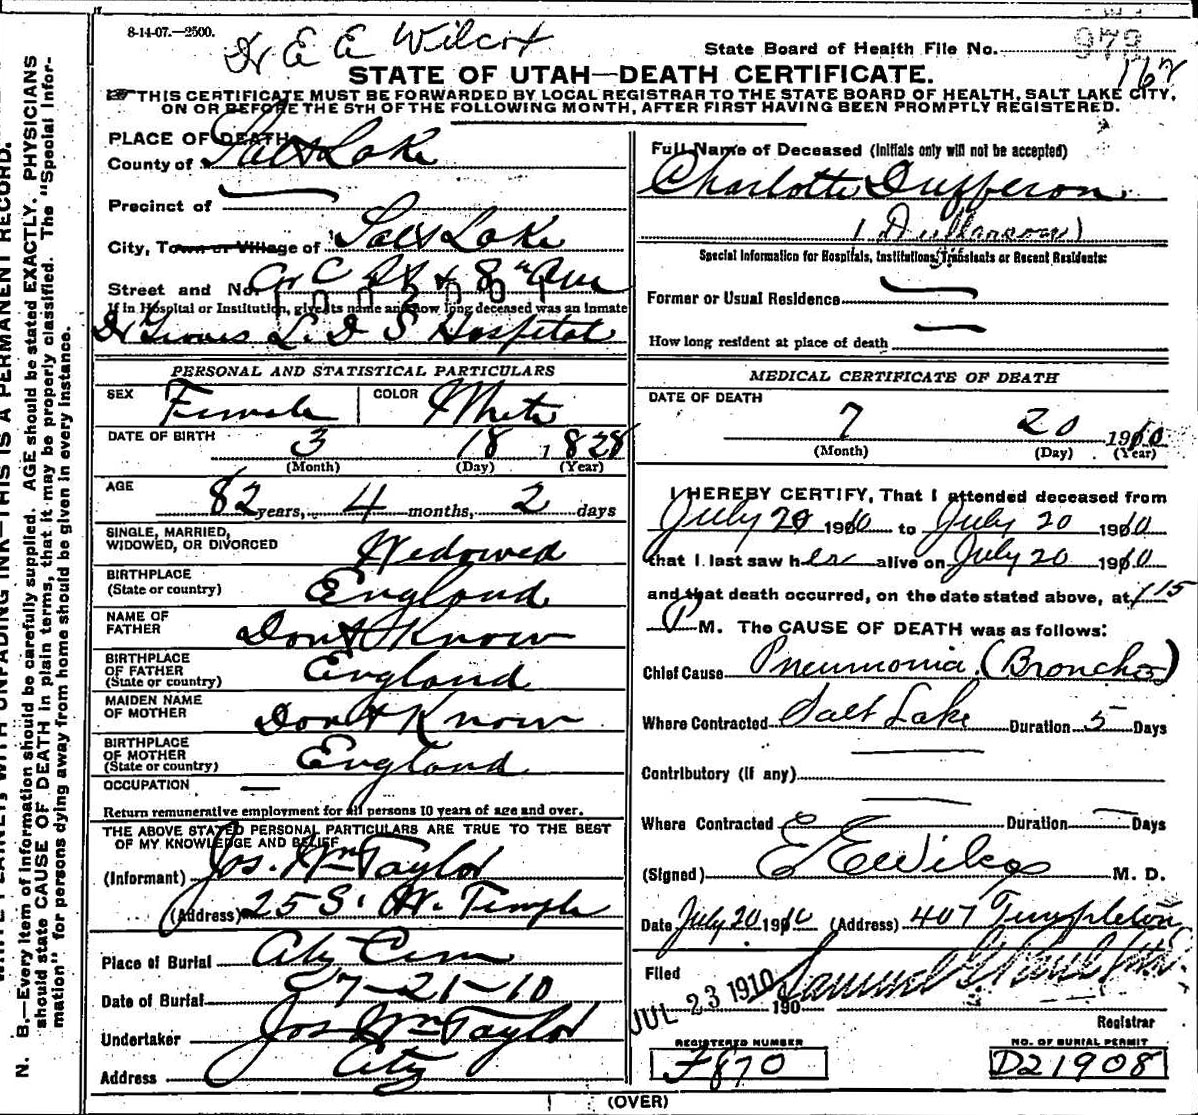 8-14-07.—2500.
Dr E E Wilcox
State Board of Health File No. 973
STATE OF UTAH—DEATH CERTIFICATE.
162
THIS CERTIFICATE MUST BE FORWARDED BY LOCAL REGISTRAR TO THE STATE BOARD OF HEALTH, SALT LAKE CITY,
ON OR BEFORE THE 5TH OF THE FOLLOWING MONTH, AFTER FIRST HAVING BEEN PROMPTLY REGISTERED.
PLACE OF DEATH
County of Salt Lake
Precinct of —
City, Town or Village of Salt Lake
Street and No. Cor C St & 8th Ave
If in Hospital or Institution, give its name and how long deceased was an inmate
Dr Groves L. D S Hospital
PERSONAL AND STATISTICAL PARTICULARS
SEX Female COLOR White
DATE OF BIRTH 3 18 1828
(Month) (Day) (Year)
AGE 82 years, 4 months, 2 days
SINGLE, MARRIED,
WIDOWED, OR DIVORCED Widowed
BIRTHPLACE
(State or country) England
NAME OF
FATHER Dont Know
BIRTHPLACE
OF FATHER
(State or country) England
MAIDEN NAME
OF MOTHER Dont Know
BIRTHPLACE
OF MOTHER
(State or country) England
OCCUPATION —
Return remunerative employment for all persons 10 years of age and over.
THE ABOVE STATED PERSONAL PARTICULARS ARE TRUE TO THE BEST
OF MY KNOWLEDGE AND BELIEF
(Informant) Jos. Wm Taylor
(Address) 25 S. W. Temple
Place of Burial City Cem
Date of Burial 7-21-10
Undertaker Jos Wm Taylor
Address City
Full Name of Deceased (Initials only will not be accepted)
Charlotte Dufferon
Special Information for Hospitals, Institutions, Transients or Recent Residents:
Former or Usual Residence —
How long resident at place of death —
MEDICAL CERTIFICATE OF DEATH
DATE OF DEATH
7 20 1910
(Month) (Day) (Year)
I HEREBY CERTIFY, That I attended deceased from
July 20 1910 to July 20 1910
that I last saw her alive on July 20 1910
and that death occurred, on the date stated above, at 1 15
P M. The CAUSE OF DEATH was as follows:
Chief Cause Pneumonia (Broncho)
Where Contracted Salt Lake Duration 5 Days
Contributory (if any) —
Where Contracted — Duration — Days
(Signed) E E Wilcox M. D.
Date July 20 1910 (Address) 407 Templeton
Filed
JUL 23 1910 190
Registrar
REGISTERED NUMBER
F870
NO. OF BURIAL PERMIT
D21908
(OVER)
N. B.—Every item of information should be carefully supplied. AGE should be stated EXACTLY. PHYSICIANS
should state CAUSE OF DEATH in plain terms, that it may be properly classified. The "Special Infor-
mation" for persons dying away from home should be given in every instance.